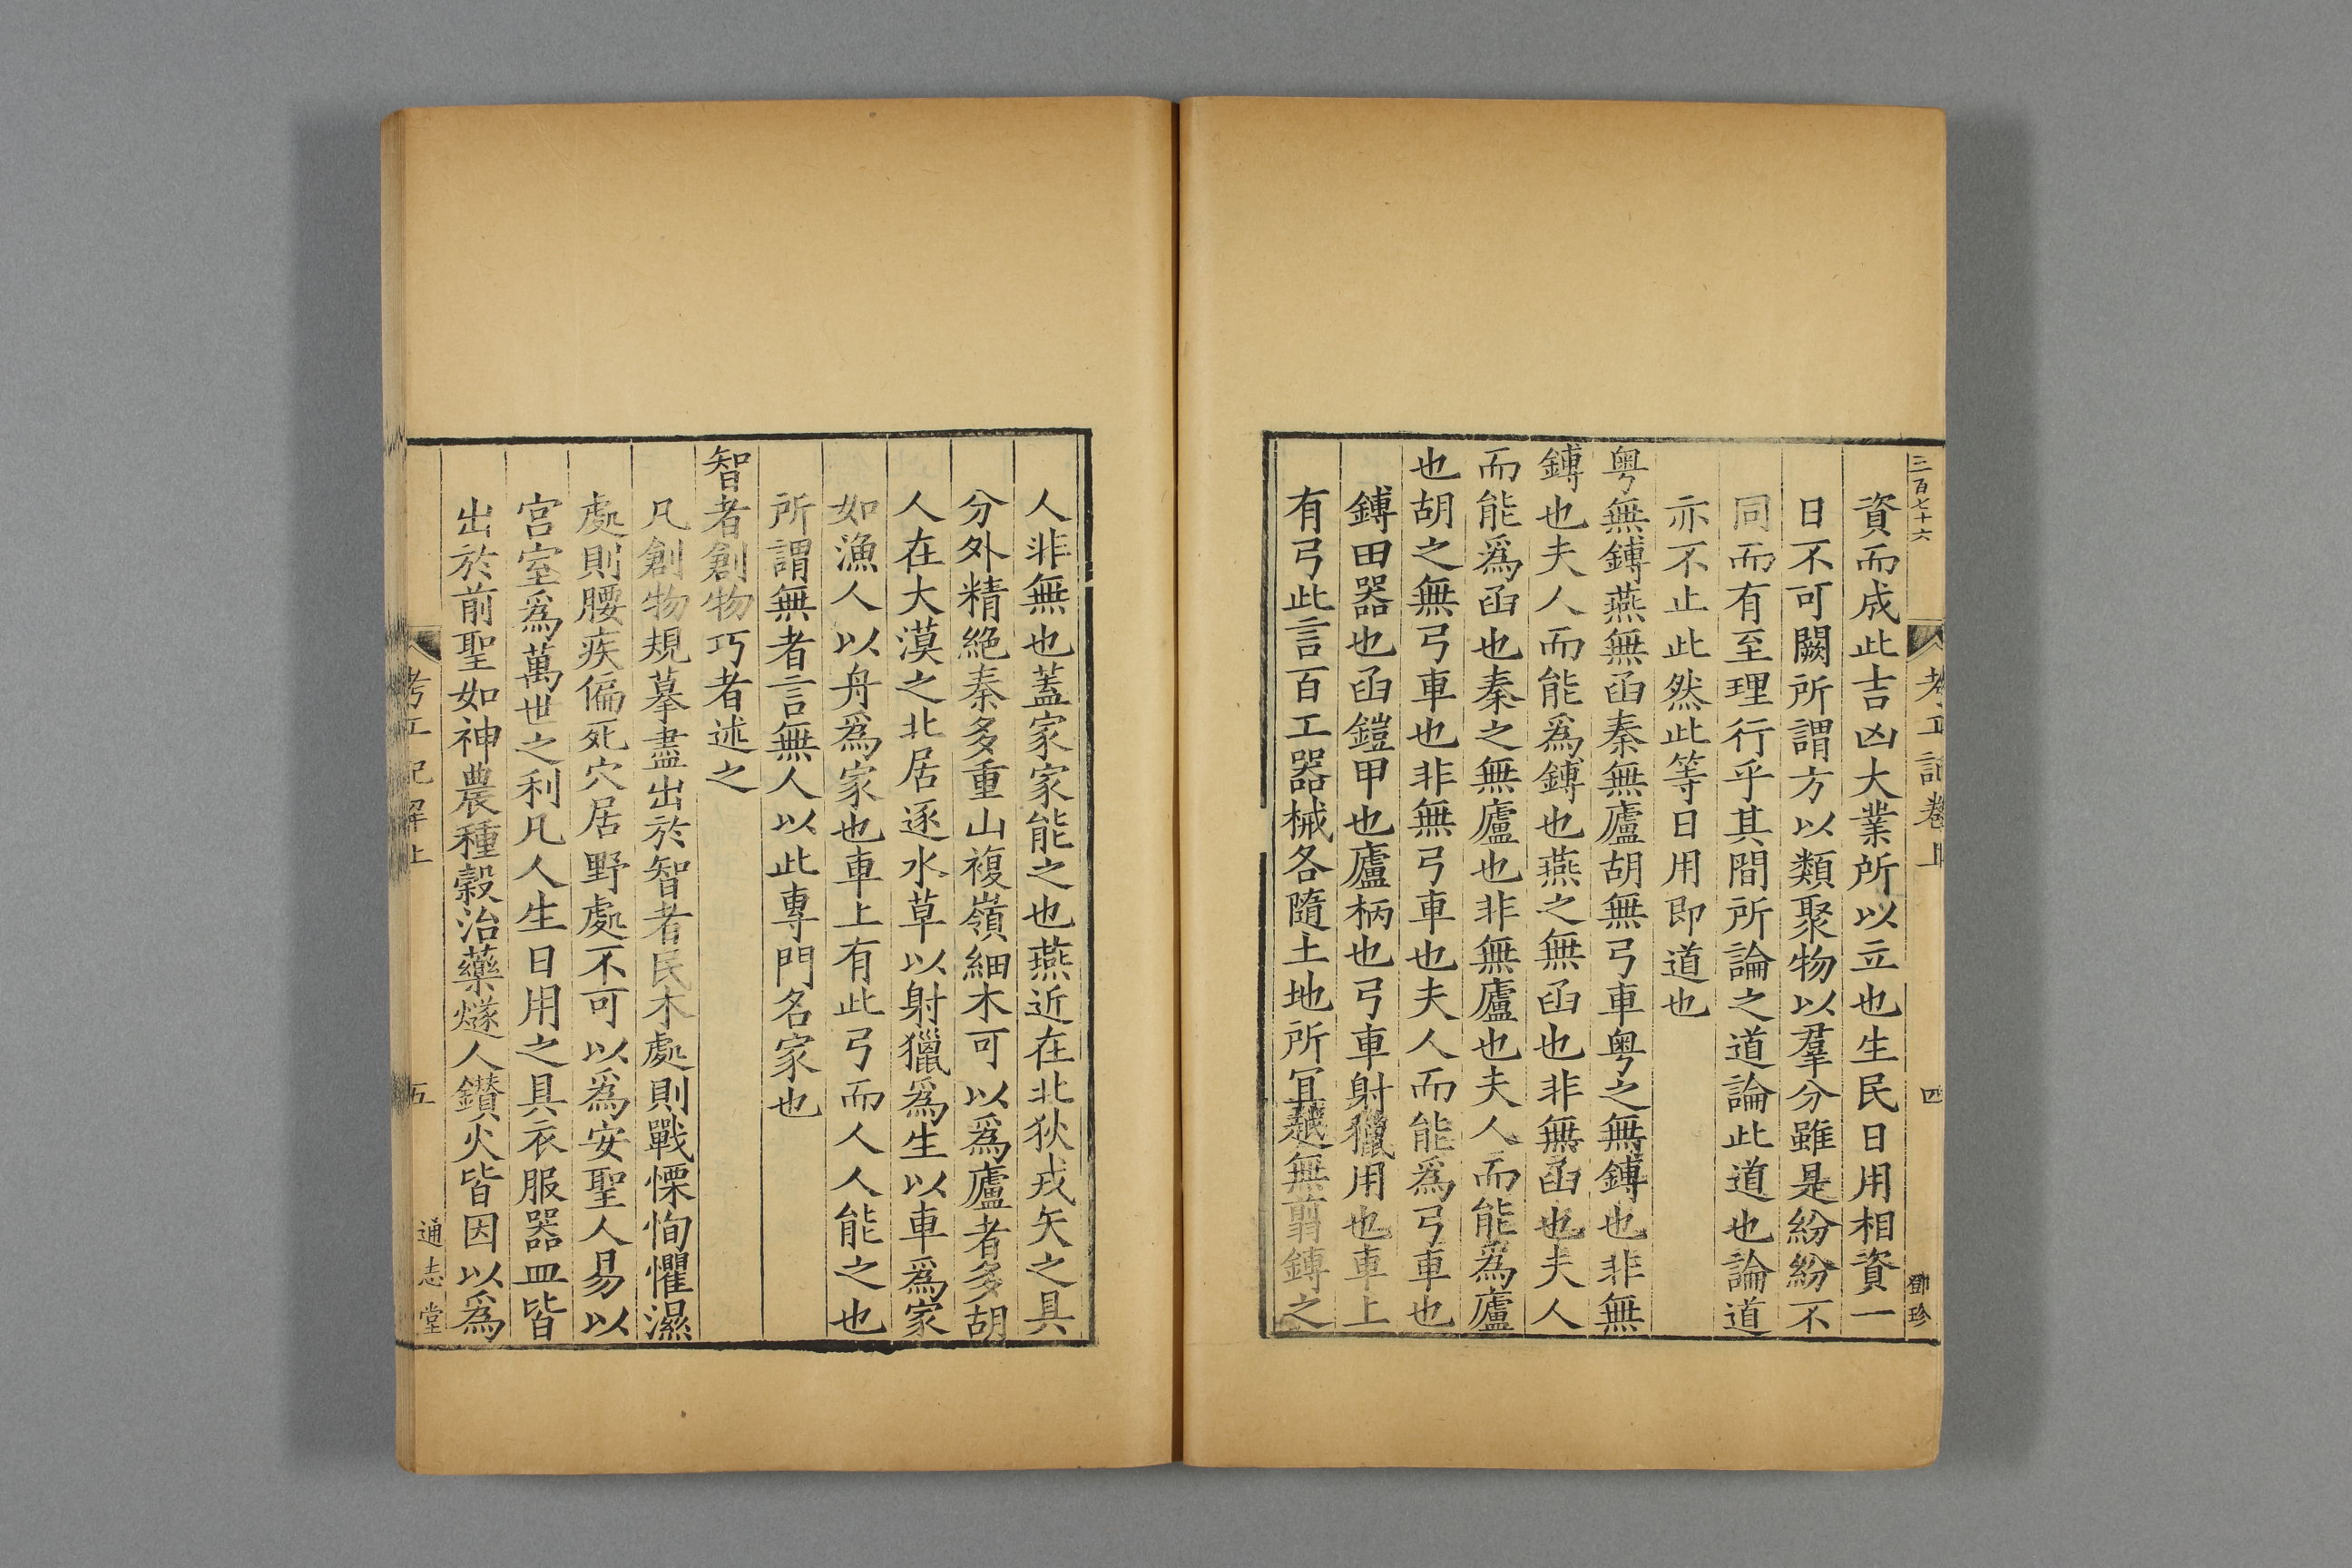 三百七十六
考工記卷上
四
鄧珍
資而成此吉凶大業所以立也生民日用相資一
日不可闕所謂方以類聚物以羣分雖是紛紛不
同而有至理行乎其間所論之道論此道也論道
亦不止此然此等日用即道也
粤無鎛燕無函秦無廬胡無弓車粤之無鎛也非無
鎛也夫人而能爲鎛也燕之無函也非無函也夫人
而能爲函也秦之無廬也非無廬也夫人而能爲廬
也胡之無弓車也非無弓車也夫人而能爲弓車也
鎛田器也函鎧甲也廬柄也弓車射獵用也車上
有弓此言百工器械各隨土地所冝越無翦鎛之
人非無也蓋家家能之也燕近在北狄戎矢之具
分外精絶秦多重山複嶺細木可以爲廬者多胡
人在大漠之北居逐水草以射獵爲生以車爲家
如漁人以舟爲家也車上有此弓而人人能之也
所謂無者言無人以此專門名家也
智者創物巧者述之
凡創物規摹盡出於智者民木處則戰慄恂懼濕
處則腰疾偏死穴居野處不可以爲安聖人易以
宮室爲萬世之利凡人生日用之具衣服器皿皆
出於前聖如神農種穀治藥燧人鑚火皆因以爲
考工記解上
五
通志堂